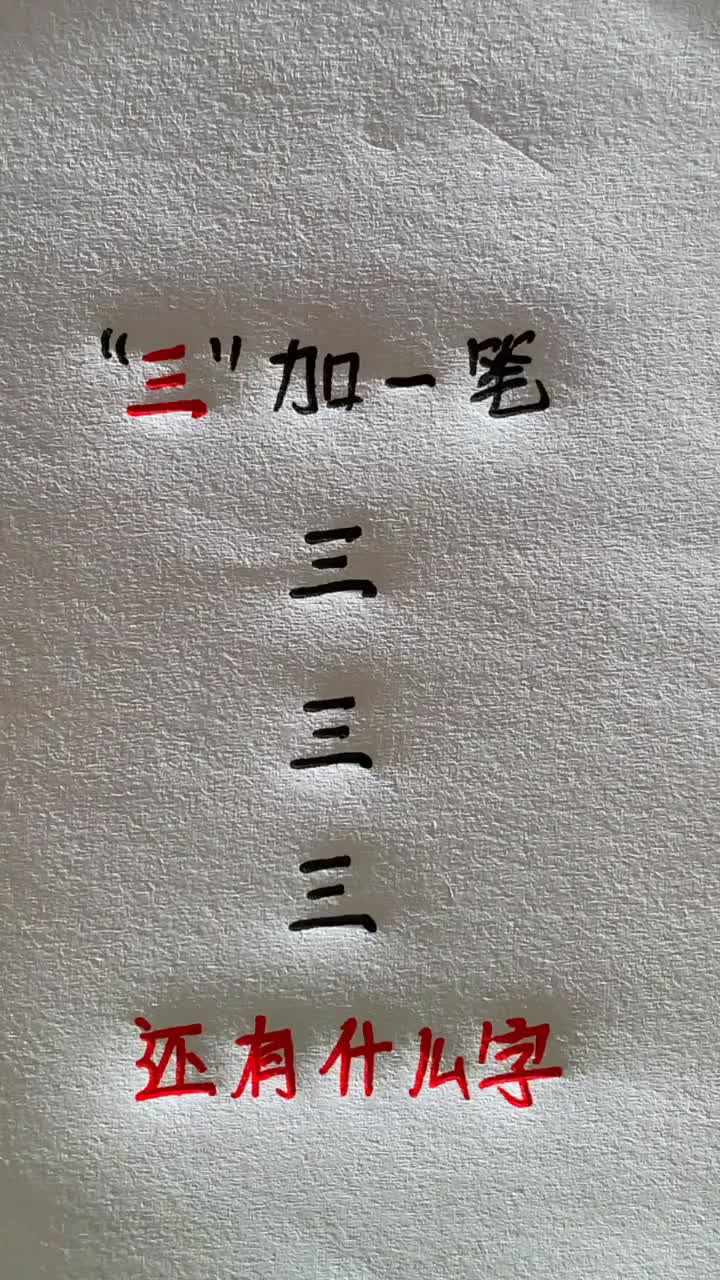 “三”加一笔
三
三
三
还有什么字